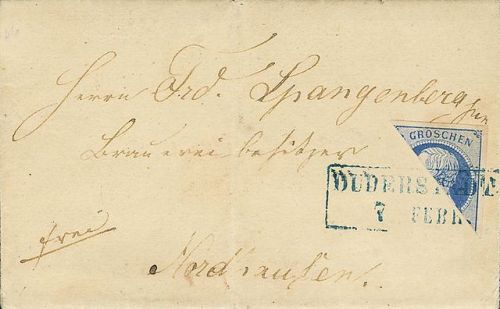 Herrn Frd. Spangenberg jun
GROSCHEN
Brauereibesitzer
DUDERSTADT
7 FEBR
frei
Nordhausen.